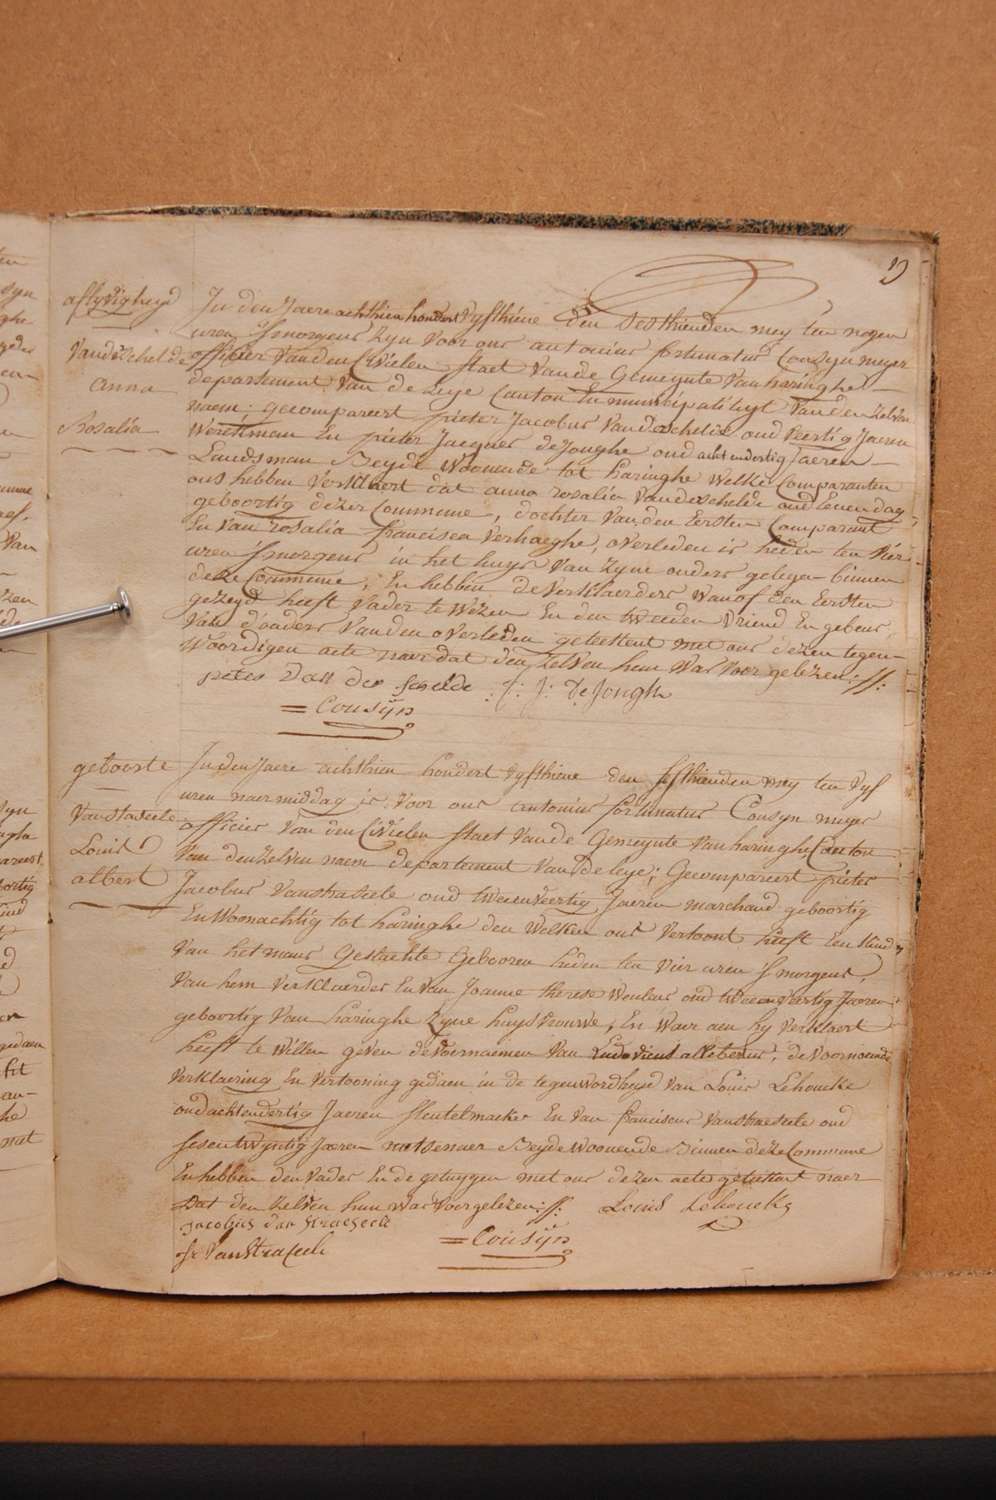 9
aflyvigheyd
Vandeschelde
anna
Rosalia
In den Jaere achthien hondert Vyfthiene den sesthienden mey ten negen
uren s'morgens Zyn Voor ons antonius fortunatus Cousyn meyer
officier Van den Civielen Staet Van de Gemeynte Van haringhe
departement Van de Leye Canton En municipaliteyt Van den Zelven
naem, gecompareert pieter Jacobus Vandeschelde oud Veertig Jaeren
Werkman En pieter Jacques deJonghe oud acht endertig Jaeren
Landsman Beyde Woonende tot haringhe Welke Comparanten
ons hebben Verklaert dat anna rosalia Vandeschelde oud Eenen dag
geboortig dezer Commune, dochter Van den Eersten Comparant
En Van rosalia francisca Verhaeghe, overleden is heden ten Vier
uren s'morgens in het huys Van Zyne ouders gelegen binnen
deze Commune, En hebben de Verklaerders Wanof den Eersten
gezeyd heeft Vader te Wezen En den tweeden Vriend En gebeur
Van d'ouders Van den overleden geteekent met ons dezen tegen-
Woordigen acte naer dat den Zelven hun Was Voor gelezen ://:
peter Van der schelde : P: J: DeJongh
= Cousijn
geboorte
Vanstraseele
Louis
albert
In den Jaere achthien hondert Vyfthiene den sesthienden mey ten Vyf
uren naermiddag is Voor ons antonius fortunatus Cousyn meyer
officier Van den Civielen Staet Van de Gemeynte Van haringhe Canton
Van den Zelven naem departement Van de Leye; Gecompareert pieter
Jacobus Vanstraseele oud tweenveertig Jaeren marchand geboortig
En Woonachtig tot haringhe den Welken ons Vertoont heeft Een kind
Van het mans Geslachte Gebooren heden ten Vier uren s'morgens,
Van hem Verklaerder En Van Joanne therese Wenkeur oud tweeenvertig Jaeren
geboortig Van haringhe Zyne huysvrouwe, En Waer aen hy Verklaert
heeft te Willen geven de Voornaemen Van Ludovicus albertus, de Voornoemde
Verklaering En Vertooning gedaen in de tegenwoordheyd Van Louis Lehoucke
oud achtendertig Jaeren sleutelmaeker En Van franciscus Vanstraeseele oud
sesentwyntig Jaeren Beyde Woonende Binnen deze Commune
En hebben den Vader En de getuygen met ons dezen acte geteekent naer
Dat den Zelven hun Was Voorgelezen ://: Louis Lehoucke
Jacobus Van Straeseele
fr Vanstraseele
= Cousijn